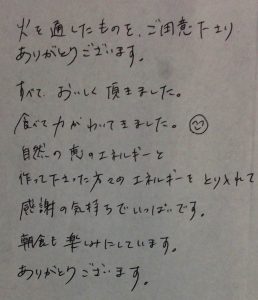 火を通したものを、ご用意下さり
ありがとうございます。
すべて、おいしく頂きました。
食べて力がわいてきました。
自然の恵のエネルギーと
作って下さった方々のエネルギーをとり入れて
感謝の気持ちでいっぱいです。
朝食も楽しみにしています。
ありがとうございます。